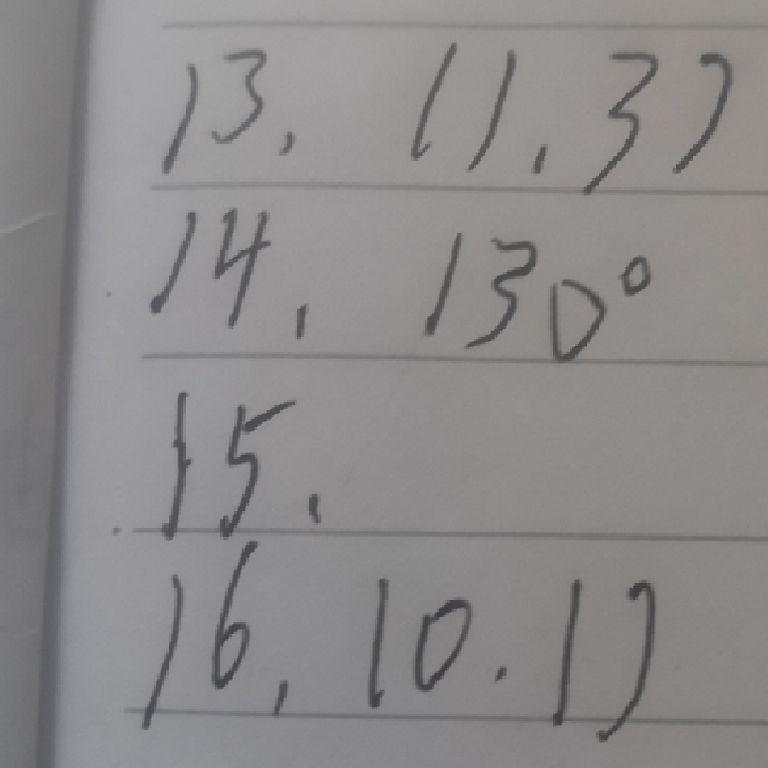 13. 11.37
14. 130°
15.
16. 10.17